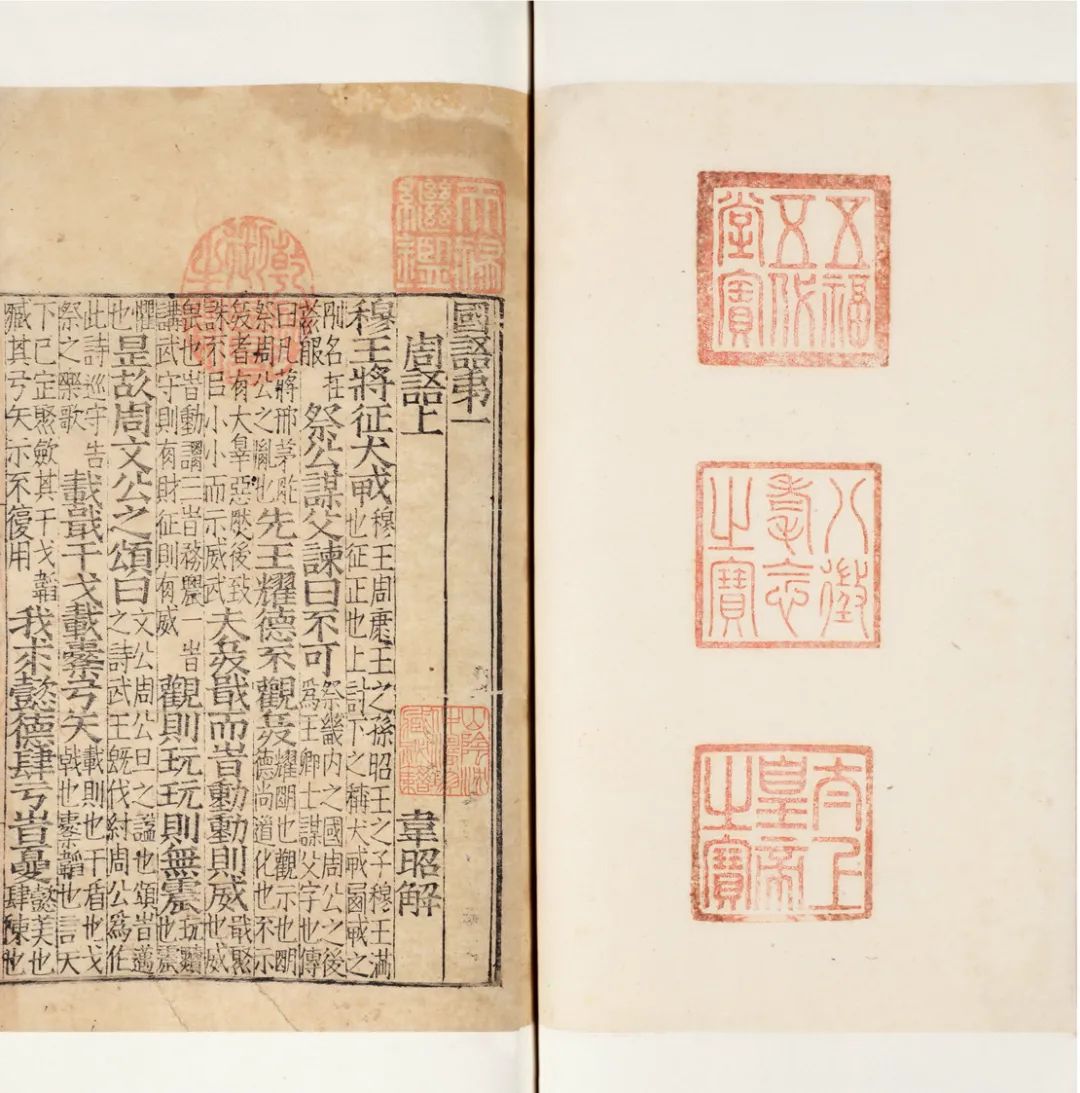 五福五代堂寶
八徵耄念之寶
太上皇帝之寶
天祿繼鑑
乾隆御覽之寶
國語第一
周語上 韋昭解
山陰沈仲濤珍藏祕籍
穆王將征犬戎 穆王周康王之孫昭王之子穆王滿也征正也上討下之稱犬戎西戎之
別名在荒服 祭公謀父諫曰不可 祭畿內之國周公之後為王卿士謀父字也傳
曰凡蔣邢茅胙祭周公之胤也 先王耀德不觀兵 耀明也觀示也明德尚道化也不示
兵者有大辠惡然後致誅不以小小而示威武 夫兵戢而時動動則威 戢聚也威
畏也時動謂三時務農一時講武守則有財征則有威 觀則玩玩則無震 玩黷也震
懼也 是故周文公之頌曰 文公周公旦之謚也頌時邁之詩武王既伐紂周公為作
此詩巡守告祭之樂歌 載戢干戈載櫜弓矢 載則也干盾也戈戟也櫜韜也言天
下已定聚斂其干戈韜藏其弓矢示不復用 我求懿德肆于時夏 懿美也肆陳也